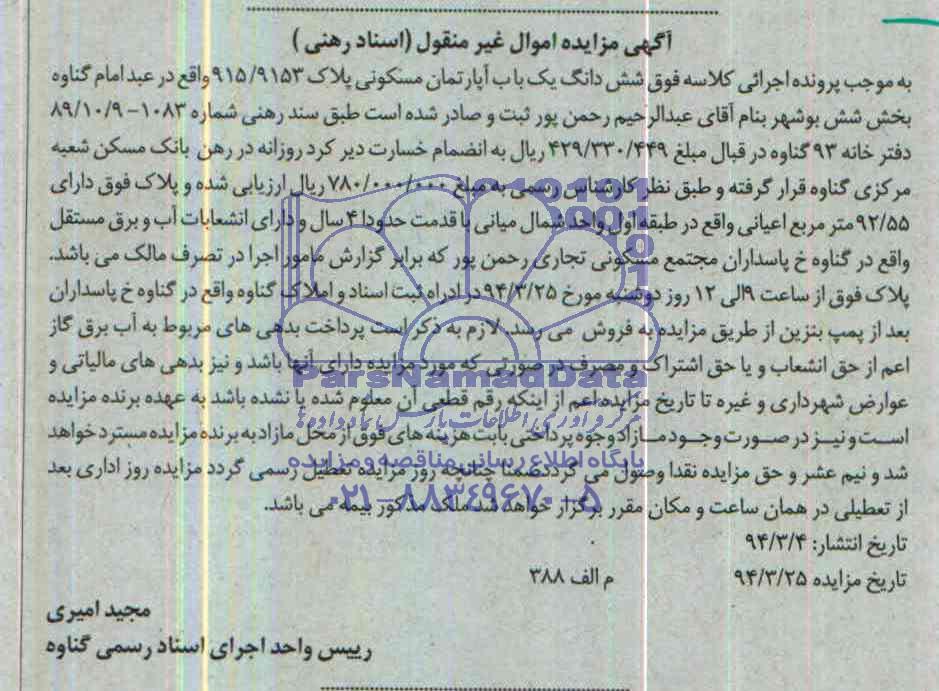 آگهی مزایده اموال غیر منقول (اسناد رهنی )
به موجب پرونده اجرائی کلاسه فوق شش دانگ یک باب آپارتمان مسکونی پلاک ۹۱۵/۹۱۵۳ واقع در عبدامام گناوه
بخش شش بوشهر بنام آقای عبدالرحیم رحمن پور ثبت و صادر شده است طبق سند رهنی شماره ۱۰۸۳-۸۹/۱۰/۹
دفتر خانه ۹۳ گناوه در قبال مبلغ ۴۲۹/۳۳۰/۴۴۹ ریال به انضمام خسارت دیر کرد روزانه در رهن بانک مسکن شعبه
مرکزی گناوه قرار گرفته و طبق نظر کارشناس رسمی به مبلغ ۷۸۰/۰۰۰/۰۰۰ ریال ارزیابی شده و پلاک فوق دارای
۹۲/۵۵ متر مربع اعیانی واقع در طبقه اول واحد شمال میانی با قدمت حدودا ۴ سال و دارای انشعابات آب و برق مستقل
واقع در گناوه خ پاسداران مجتمع مسکونی تجاری رحمن پور که برابر گزارش مامور اجرا در تصرف مالک می باشد.
پلاک فوق از ساعت ۹ الی ۱۲ روز دوشنبه مورخ ۹۴/۳/۲۵ در ادراه ثبت اسناد و املاک گناوه واقع در گناوه خ پاسداران
بعد از پمپ بنزین از طریق مزایده به فروش می رسد. لازم به ذکر است پرداخت بدهی های مربوط به آب برق گاز
اعم از حق انشعاب و یا حق اشتراک و مصرف در صورتی که مورد مزایده دارای آنها باشد و نیز بدهی های مالیاتی و
عوارض شهرداری و غیره تا تاریخ مزایده اعم از اینکه رقم قطعی آن معلوم شده یا نشده باشد به عهده برنده مزایده
است و نیز در صورت وجود مازاد وجوه پرداختی بابت هزینه های فوق از محل مازاد به برنده مزایده مسترد خواهد
شد و نیم عشر و حق مزایده نقدا وصول می گردد ضمنا چنانچه روز مزایده تعطیل رسمی گردد مزایده روز اداری بعد
از تعطیلی در همان ساعت و مکان مقرر برگزار خواهد شد ملک مذکور بیمه می باشد.
تاریخ انتشار: ۹۴/۳/۴
تاریخ مزایده ۹۴/۳/۲۵ م الف ۳۸۸
مجید امیری
رییس واحد اجرای اسناد رسمی گناوه
ParsNamadData
مرکز فرآوری اطلاعات پارس نماد داده ها
پایگاه اطلاع رسانی مناقصه و مزایده
۰۲۱-۸۸۳۴۹۶۷۰-۵